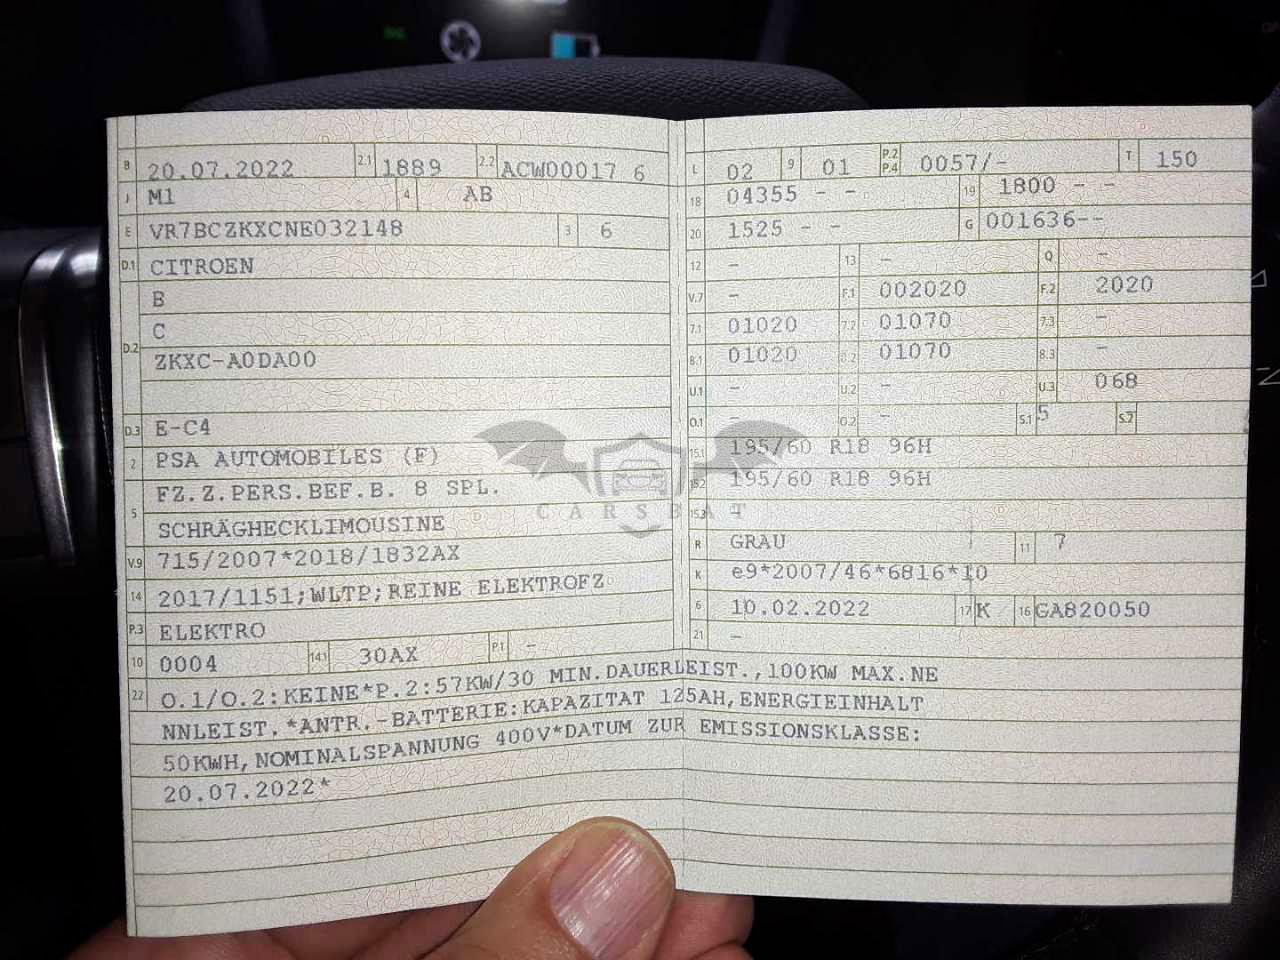 B 20.07.2022 2.1 1889 2.2 ACW00017 6
J M1 4 AB
E VR7BCZKXCNE032148 3 6
D.1 CITROEN
B
C
D.2 ZKXC-A0DA00
D.3 E-C4
2 PSA AUTOMOBILES (F)
FZ.Z.PERS.BEF.B. 8 SPL.
5 SCHRÄGHECKLIMOUSINE
V.9 715/2007*2018/1832AX
14 2017/1151;WLTP;REINE ELEKTROFZ
P.3 ELEKTRO
10 0004 14.1 30AX P.1 -
L 02 9 01 P.2 P.4 0057/- T 150
18 04355 - - 19 1800 - -
20 1525 - - G 001636--
12 - 13 - Q -
V.7 - F.1 002020 F.2 2020
7.1 01020 7.2 01070 7.3 -
8.1 01020 8.2 01070 8.3 -
U.1 - U.2 - U.3 068
O.1 - O.2 - S.1 5 S.2
15.1 195/60 R18 96H
15.2 195/60 R18 96H
15.3 -
R GRAU 11 7
K e9*2007/46*6816*10
6 10.02.2022 17 K 16 GA820050
21 -
22 O.1/O.2:KEINE*P.2:57KW/30 MIN.DAUERLEIST.,100KW MAX.NE
NNLEIST.*ANTR.-BATTERIE:KAPAZITAT 125AH,ENERGIEINHALT
50KWH,NOMINALSPANNUNG 400V*DATUM ZUR EMISSIONSKLASSE:
20.07.2022*
CARSBAT